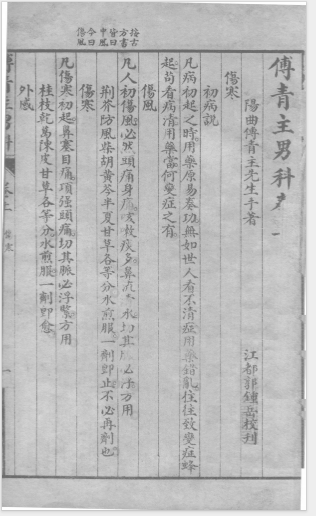 按古
方書
皆曰
中風
今曰
傷風
傅青主男科
陽曲傅青主先生手著
江都郭鍾岳校刊
傷寒
初病說
凡病初起之時用藥原易奏功無如世人看不清症用藥錯亂往往致變症蜂
起苟看病清用藥當何變症之有
傷風
凡人初傷風必然頭痛身痛咳嗽痰多鼻流清水切其脈必浮方用
荆芥防風柴胡黃芩半夏甘草各等分水煎服一劑即止不必再劑也
傷寒
凡傷寒初起鼻塞目痛項强頭痛切其脈必浮緊方用
桂枝乾葛陳皮甘草各等分水煎服一劑即愈
外感
傅青主男科